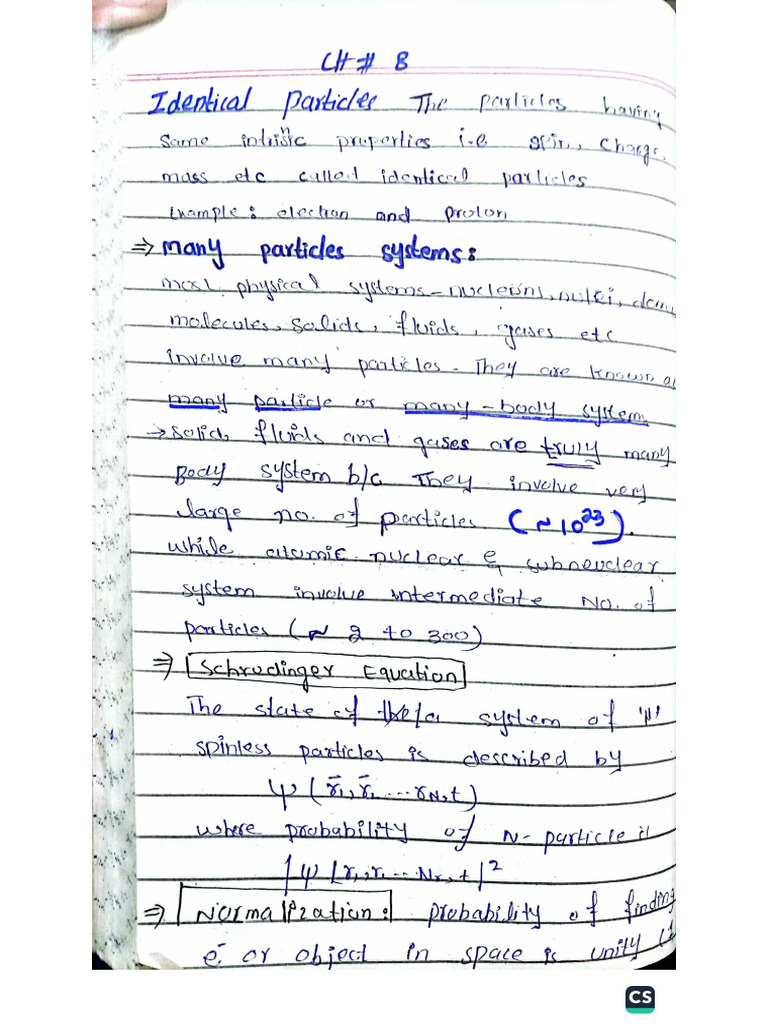 CH# 8
Identical Particles The particles having
Same intrinsic properties i.e spin, charge,
mass etc called identical particles
Example: electron and proton
⇒ many particles systems:
most physical systems - nucleons, nuclei,
molecules, solids, fluids, gases etc
involve many particles. They are known as
many particle or many-body system.
→ solid, fluids and gases are truly many
Body system b/c They involve very
large no. of particles (~10²³).
while atomic, nuclear & subnuclear
system involve intermediate No. of
particles (~ 2 to 300)
⇒ Schrodinger Equation
The state of a system of 'N'
spinless particles is described by
ψ(r̄₁, r̄₂ ... r_N, t)
where probability of N-particle is
|ψ(r₁, r₂ ... N_r, t|²
⇒ Normalization: probability of finding
e⁻ or object in space is unity (1
CS